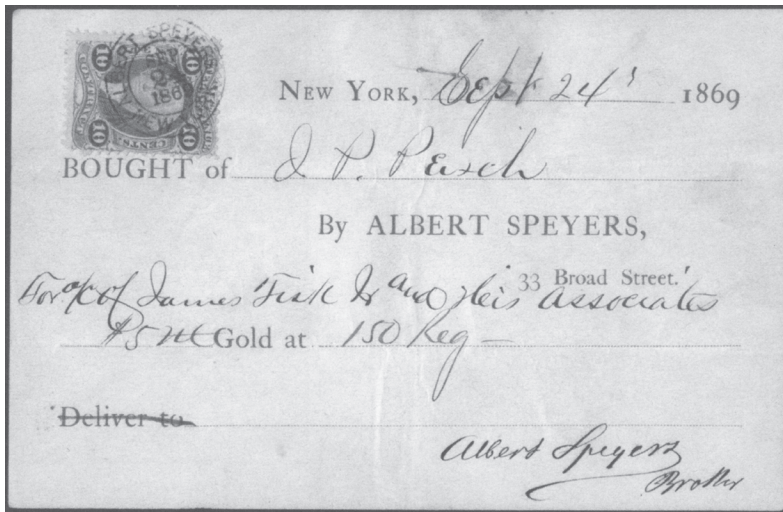 ALBERT SPEYERS
SEP
24
1869
10 10
CENTS
10 10
NEW YORK, Sept 24' 1869
BOUGHT of J P.
By ALBERT SPEYERS,
33 Broad Street.
For a/c of James Fisk Jr and His Associates
Gold at 150 Reg –
Deliver to
Albert Speyers
Broker